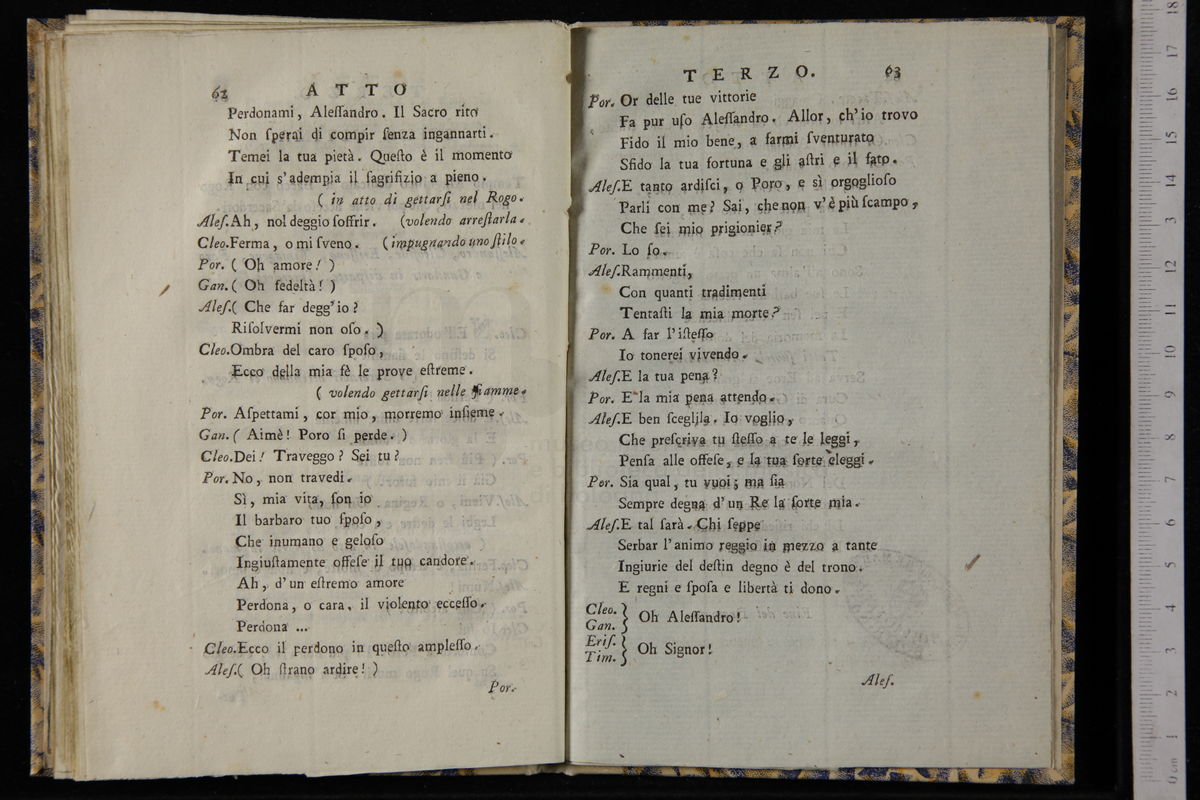 62 ATTO
Perdonami, Aleſſandro. Il Sacro rito
Non ſperai di compir ſenza ingannarti.
Temei la tua pietà. Queſto è il momento
In cui s'adempia il ſagrifizio a pieno.
( in atto di gettarſi nel Rogo.
Aleſ. Ah, nol deggio ſoffrir. (volendo arreſtarla.
Cleo. Ferma, o mi ſveno. (impugnando uno ſtilo.
Por. ( Oh amore! )
Gan. ( Oh fedeltà! )
Aleſ. ( Che far degg'io?
Riſolvermi non oſo. )
Cleo. Ombra del caro ſpoſo,
Ecco della mia fè le prove eſtreme.
( volendo gettarſi nelle fiamme.
Por. Aſpettami, cor mio, morremo inſieme.
Gan. ( Aimè! Poro ſi perde. )
Cleo. Dei! Traveggo? Sei tu?
Por. No, non travedi.
Sì, mia vita, ſon io
Il barbaro tuo ſpoſo,
Che inumano e geloſo
Ingiuſtamente offeſe il tuo candore.
Ah, d'un eſtremo amore
Perdona, o cara, il violento ecceſſo.
Perdona ...
Cleo. Ecco il perdono in queſto ampleſſo.
Aleſ. ( Oh ſtrano ardire! )
Por.
TERZO. 63
Por. Or delle tue vittorie
Fa pur uſo Aleſſandro. Allor, ch'io trovo
Fido il mio bene, a farmi ſventurato
Sfido la tua fortuna e gli aſtri e il fato.
Aleſ. E tanto ardiſci, o Poro, e sì orgoglioſo
Parli con me? Sai, che non v'è più ſcampo,
Che ſei mio prigionier?
Por. Lo ſo.
Aleſ. Rammenti,
Con quanti tradimenti
Tentaſti la mia morte?
Por. A far l'iſteſſo
Io tonerei vivendo.
Aleſ. E la tua pena?
Por. E la mia pena attendo.
Aleſ. E ben ſceglila. Io voglio,
Che preſcriva tu ſteſſo a te le leggi,
Penſa alle offeſe, e la tua ſorte eleggi.
Por. Sia qual, tu vuoi; ma ſia
Sempre degna d'un Re la ſorte mia.
Aleſ. E tal ſarà. Chi ſeppe
Serbar l'animo reggio in mezzo a tante
Ingiurie del deſtin degno è del trono.
E regni e ſpoſa e libertà ti dono.
Cleo. }
Gan. } Oh Aleſſandro!
Eriſ. }
Tim. } Oh Signor!
Aleſ.